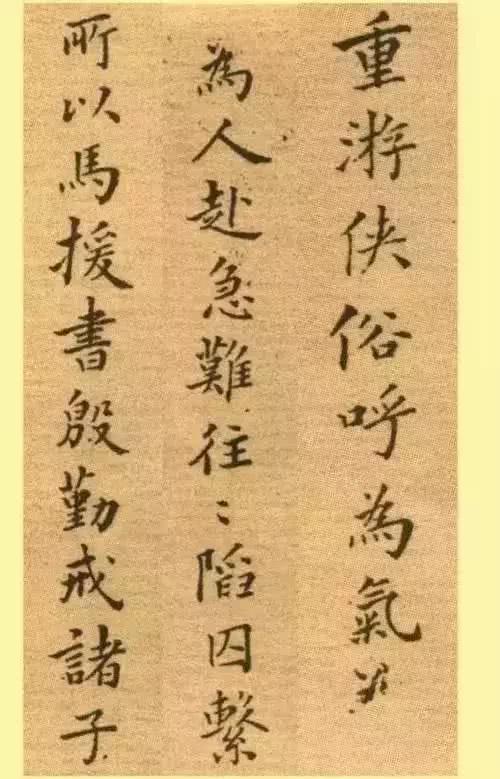 重游侠俗呼為氣義
為人赴急難往〻陷囚繫
所以馬援書殷勤戒諸子